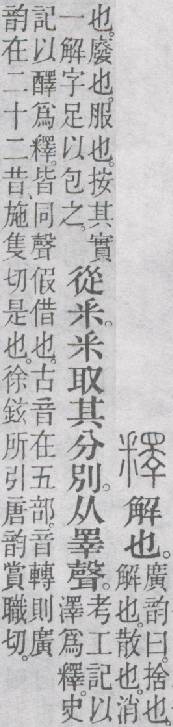 釋解也。廣韵曰。捨也。解也。散也。消
也。廢也。服也。按其實一解字足以包之。從釆。釆取其分別。从睪聲。考工記以澤爲釋。史
記以醳爲釋。皆同聲假借也。古音在五部。音轉則廣韵在二十二昔。施隻切是也。徐鉉所引唐韵賞職切。